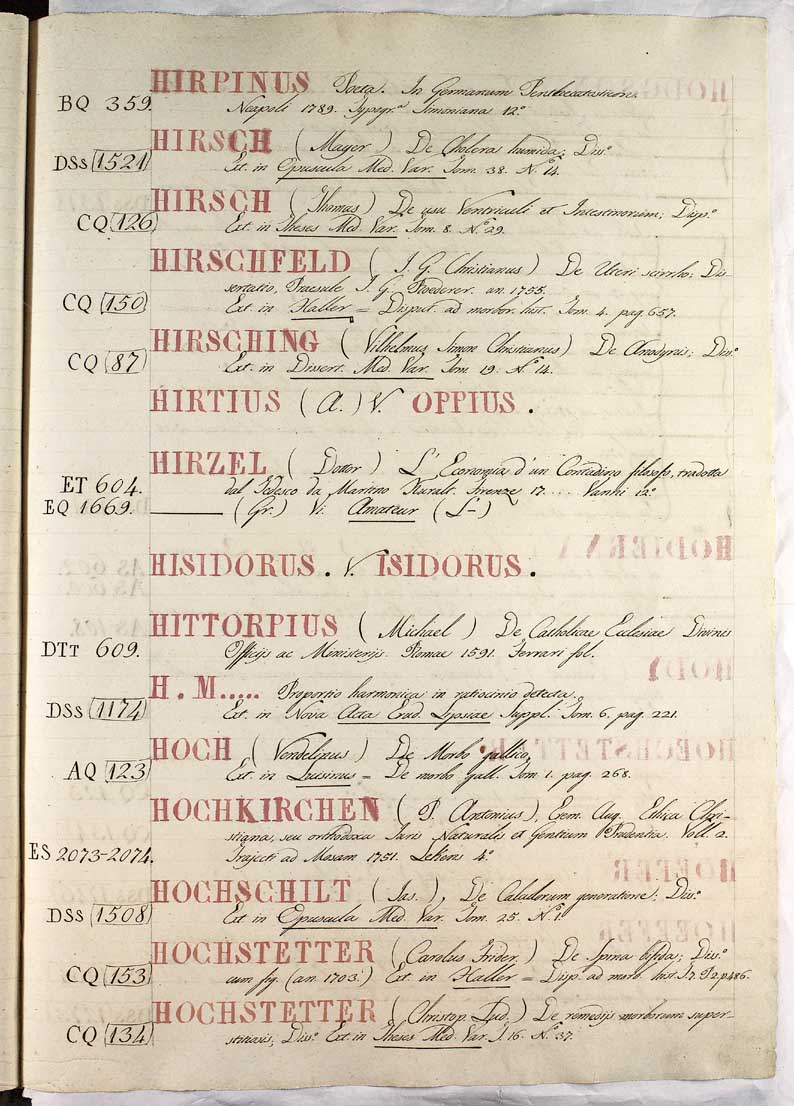 HIRPINUS Poeta. In Germanum Pentecatosticon.
BQ 359. Neapoli 1789. Typogr.ª Simoniana 12.º
HIRSCH (Mayer) De Cholera humida; Diss.º
DSs 1521 Ext. in Opuscula Med. Var. Tom. 38. N.º 14.
HIRSCH (Thomas) De usu Ventriculi et Intestinorum; Disp.º
CQ 126 Ext. in Theses Med. Var. Tom. 8. N.º 29.
HIRSCHFELD (I. G. Christianus) De Uteri scirrho; Dis
sertatio, Praeside I. G. Roederer. an. 1755.
CQ 150 Ext. in Haller = Disput. ad morbor. hist. Tom. 4. pag. 657.
HIRSCHING (Vilhelmus Simon Christianus) De Anodynis; Diss.º
CQ 87 Ext. in Dissert. Med. Var. Tom. 19. N.º 14.
HIRTIUS (A.) V. OPPIUS.
HIRZEL (Dottor) L' Economia d'un Contadino filosofo, tradotta
ET 604. dal Tedesco da Martino Kuralt. Firenze 17.... Vanni 12.º
EQ 1669. ——— (Gr.) Vi. Amateur (L')
HISIDORUS. V. ISIDORUS.
HITTORPIUS (Michael) De Catholicae Ecclesiae Divinis
DTt 609. Officijs ac Ministerijs. Romae 1591. Ferrari fol.
H.M..... Proportio harmonica in ratiocinio detecta.
DSs 1174 Ext. in Nova Acta Erud. Lipsiae Suppl. Tom. 6. pag. 221.
HOCH (Vendelinus) De Morbo gallico.
AQ 123 Ext. in Luisinus = De morbo gall. Tom 1. pag. 268.
HOCHKIRCHEN (P. Antonius), Erem. Aug. Ethica Chri-
stiana, seu orthodoxa Juris Naturalis et Gentium Prudentia. Voll. 2.
ES 2073-2074. Trajecti ad Mosam 1751. Lekens 4.º
HOCHSCHILT (Jas.) De Caladorum generatione; Diss.º
DSS 1508 Ext in Opuscula Med. Var. Tom. 25. N.º 1.
HOCHSTETTER (Carolus Frider.) De Spina bifida; Diss.º
CQ 153 cum fig. (an. 1703.) Ext. in Haller = Disp. ad morb. hist. T. 7. P. 2. p. 486.
HOCHSTETTER (Christop. Lud.) De remedijs morborum super-
CQ 134 stitiosis; Diss.º Ext in Theses Med. Var. T. 16. N.º 37.